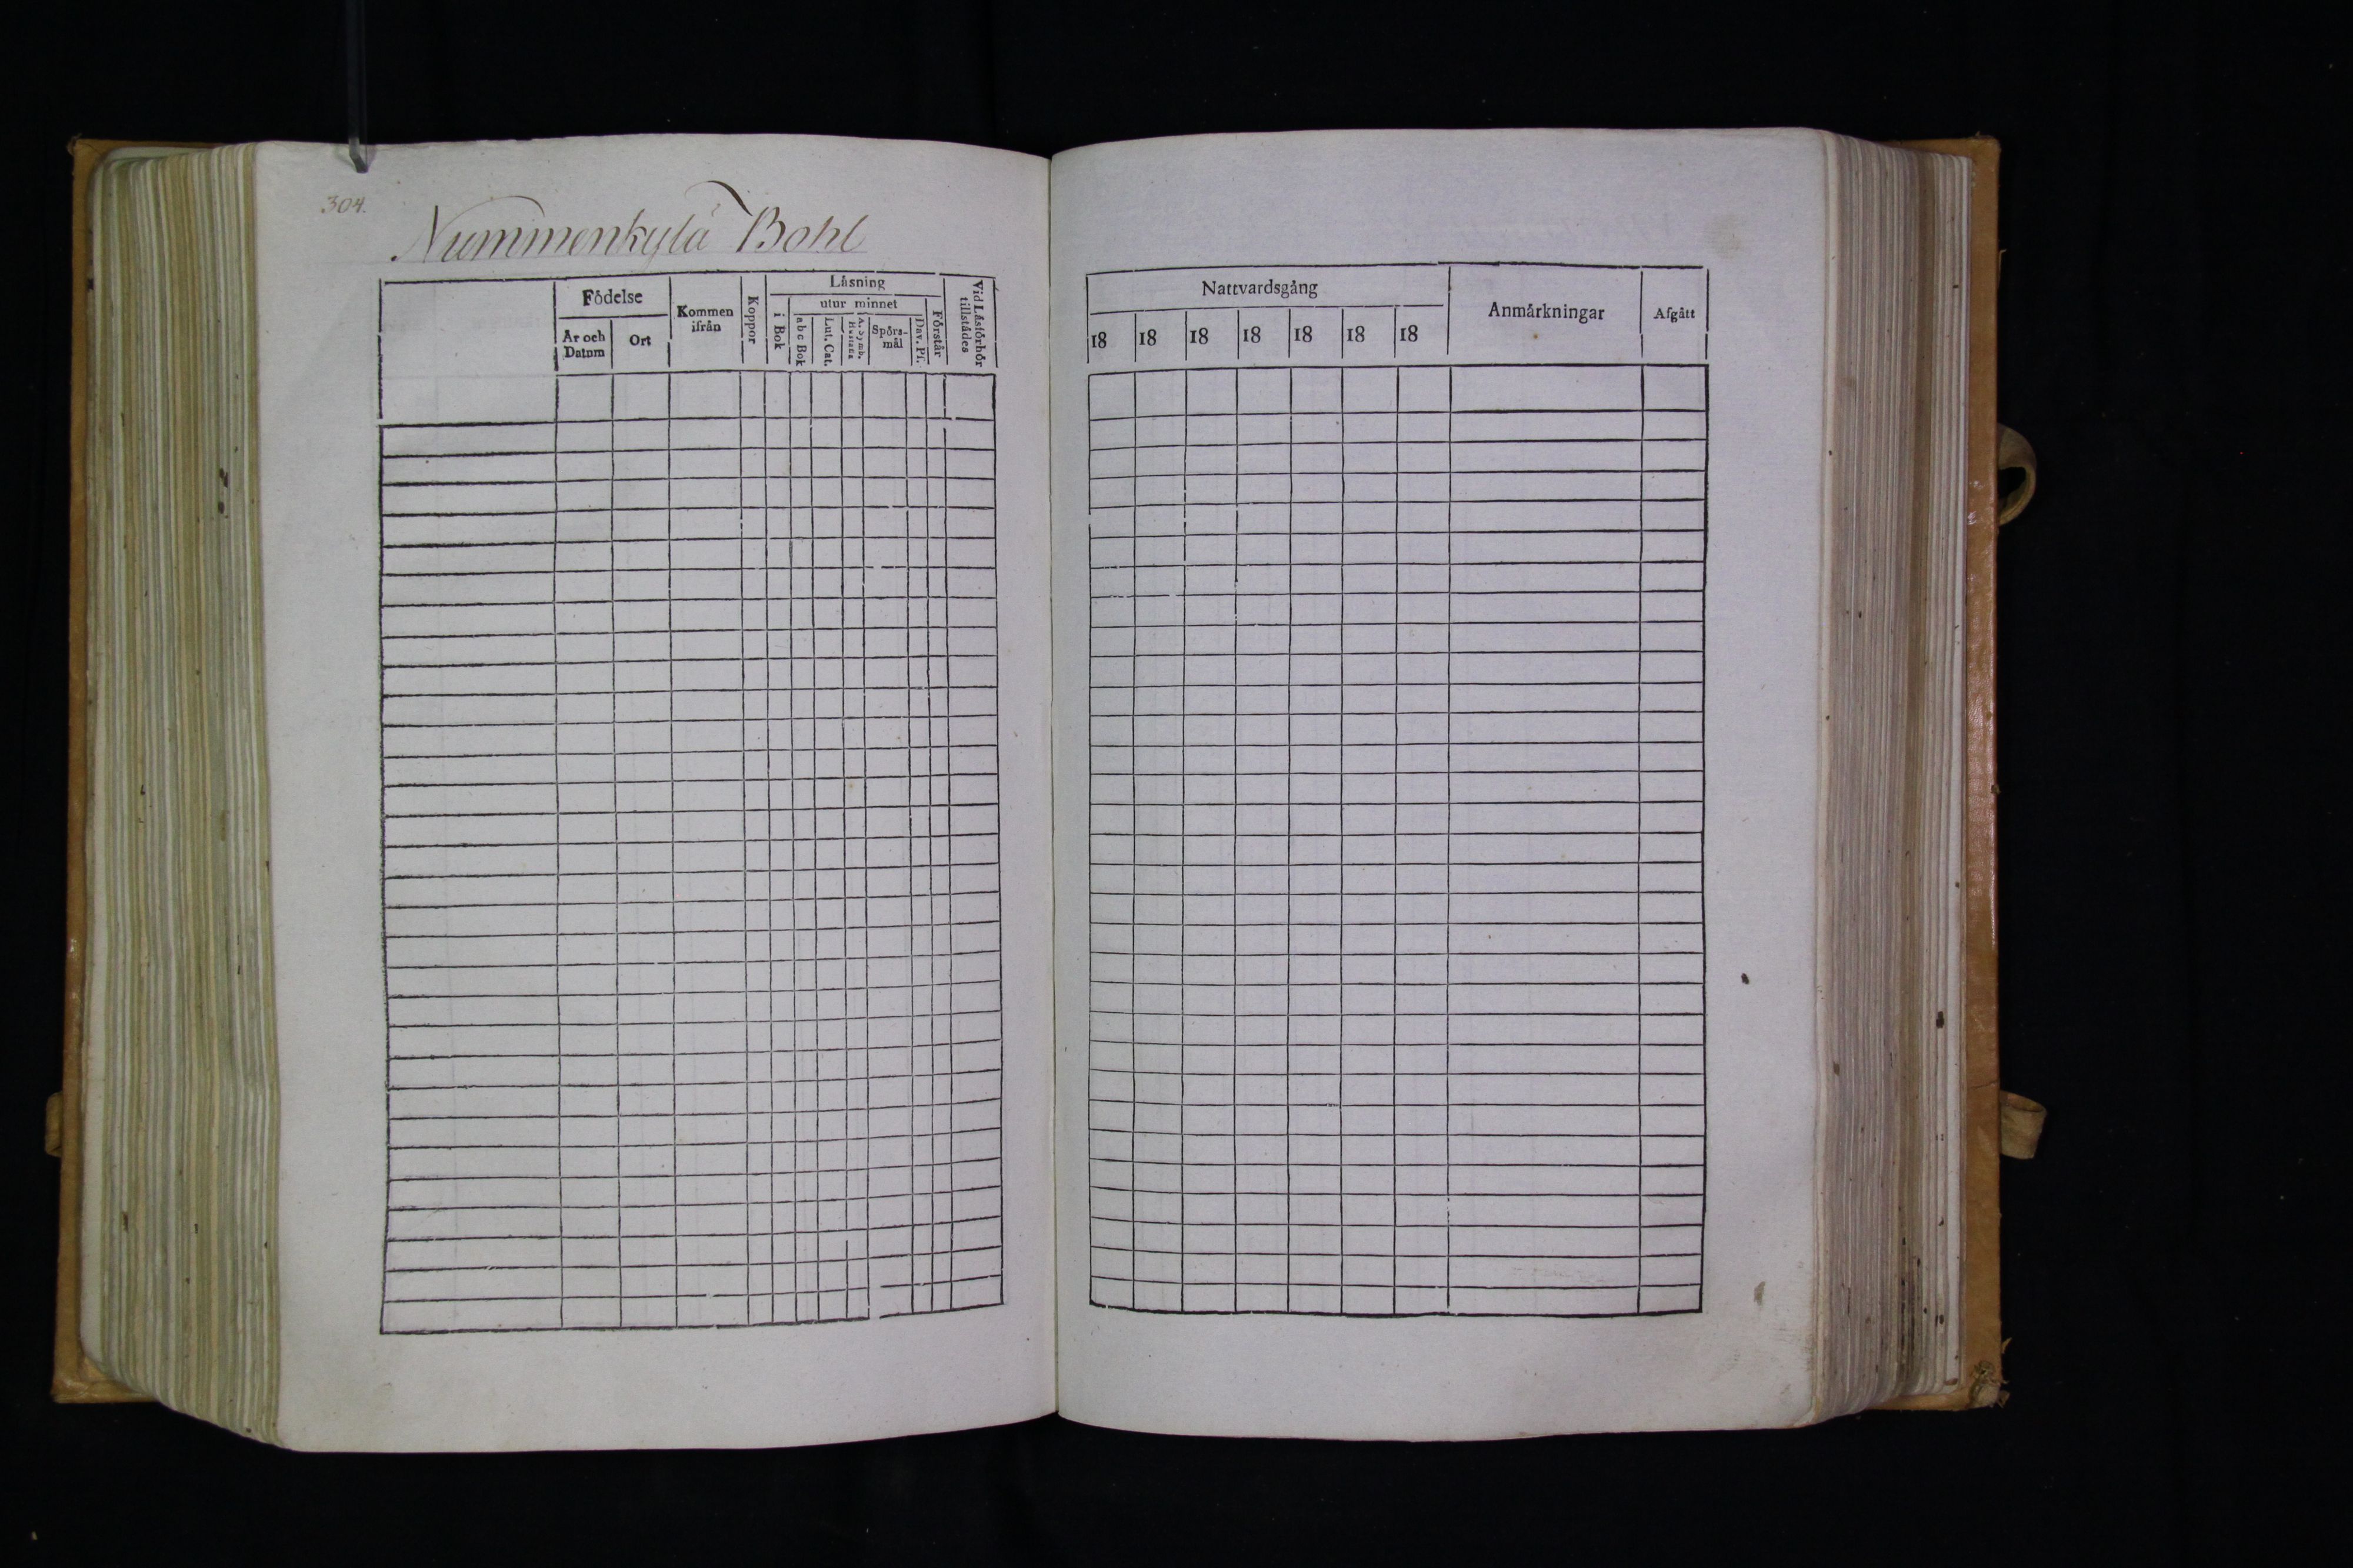 304.
Nummenkylä Bohl
Födelse
År och Datum
Ort
Kommen ifrån
Koppor
Läsning
i Bok
utur minnet
a b c Bok
Lut. Cat.
A. Symb.
Spörs-
mål
Dav. Ps.
Förstår
Vid Läsförhör
tillstädes
Nattvardsgång
18 18 18 18 18 18 18
Anmärkningar
Afgått